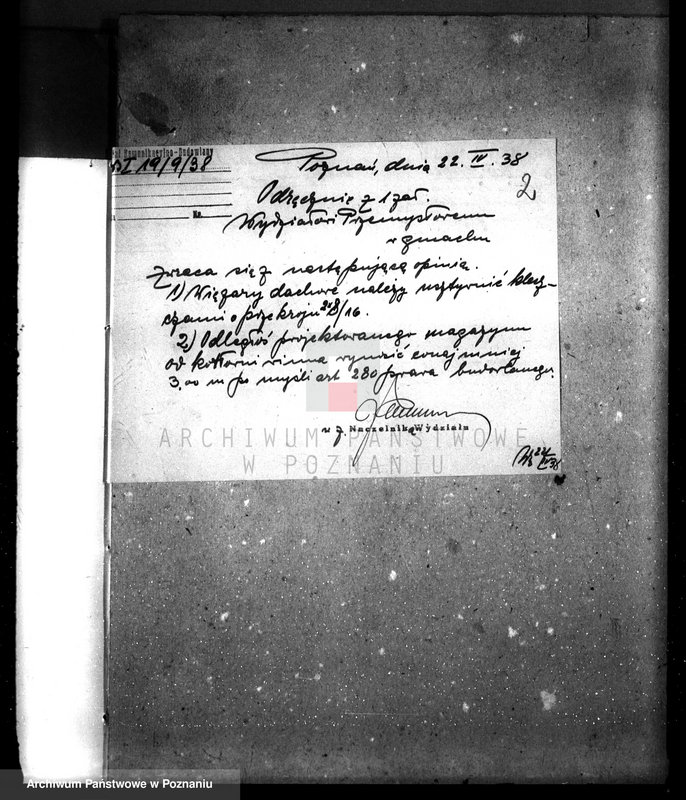 Komunikacyjno-Budowlany
I 19/9/38
Nr.
Poznań, dnia 22. IV. 38
2
Odręcznie z 1 zał.
Wydziałowi Przemysłowemu
w gmachu
zwraca się z następującą opinią.
1) Więzary dachowe należy usztywnić klesz-
czami o przekroju 2x8/16.
2.) Odległość projektowanego magazynu
od kotłowni winna wynosić conajmniej
3,00 m po myśli art 280 prawa budowlanego.
w z. Naczelnika Wydziału
22/IV 38
ARCHIWUM PAŃSTWOWE
W POZNANIU
Archiwum Państwowe w Poznaniu